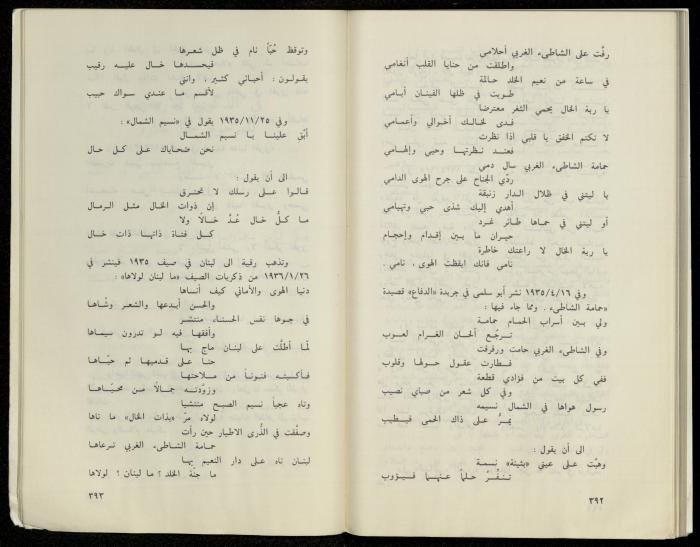 رفّت على الشاطىء الغربي أحلامي
واطلقت من حنايا القلب أنغامي
في ساعة من نعيم الخلد حالمة
طويت في ظلها الفينان أيامي
يا ربة الخال يحمي الثغر معترضا
فدى لخالك أخوالي وأعمامي
لا تكتم الخفق يا قلبي اذا نظرت
فعند نظرتها وحيي وإلهامي
حمامة الشاطىء الغربي سال دمي
ردّي الجناح على جرح الهوى الدامي
يا ليتني في ظلال الدار زنبقة
أهدي إليك شذى حبي وتهيامي
أو ليتني في حماها طائر غرد
حيران ما بين إقدام وإحجام
يا ربة الخال لا راعتك خاطرة
نامي فانك ايقظت الهوى، نامي .
وفي ١٩٣٥/٤/١٦ نشر أبو سلمى في جريدة «الدفاع» قصيدة
«حمامة الشاطىء . ومما جاء فيها :
ولي بين أسراب الحمام حمامة
ترجّع ألحان الغرام لعوب
وفي الشاطىء الغربي حامت ورفرفت
فطارت عقول حولها وقلوب
ففي كل بيت من فؤادي قطعة
وفي كل شعر من صباي نصيب
رسول هواها في الشمال نسيمه
يمرّ على ذاك الحمى فيطيب
الى أن يقول :
وهبّت على عيني «بثينة» نسمة
تنفّر حلماً عنهما فيؤوب
٣٩٢
وتوقظ حبّاً نام في ظل شعرها
فيحسدها خال عليه رقيب
يقولون : أحبائي كثير ، وانني
لأقسم ما عندي سواك حبيب
وفي ١٩٣٥/١١/٢٥ يقول في «نسيم الشمال» :
أبّق علينا يا نسيم الشمال
نحن ضحاياك على كل حال
الى ان يقول :
قالوا على رسلك لا تحترق
إن ذوات الخال مثل الرمال
ما كلّ خال عُدّ خالاً ولا
كل فتاة ذاتها ذات خال
وتذهب رقية الى لبنان في صيف ١٩٣٥ فينشر في
١٩٣٦/١/٢٦ من ذكريات الصيف «ما لبنان لولاها» :
دنيا الهوى والأماني كيف أنساها
والحسن أبدعها والشعر وشّاها
في جوها نفس الحسناء منتشر
وأفقها فيه لو تدرون سيماها
لمّا أطلّت على لبنان ماج بها
حنا على قدميها ثم حيّاها
فأكسبته فتوناً من ملاحتها
وزوّدته جمالاً من محيّاها
وتاه عجباً نسيم الصبح منتشيا
لولاه مرّ «بذات الخال» ما تاها
وصفّقت في الذُرى الاطيار حين رأت
حمامة الشاطىء الغربي ترعاها
لبنان تاه على دار النعيم بها
ما جنّة الخلد ؟ ما لبنان ؟ لولاها
٣٩٣